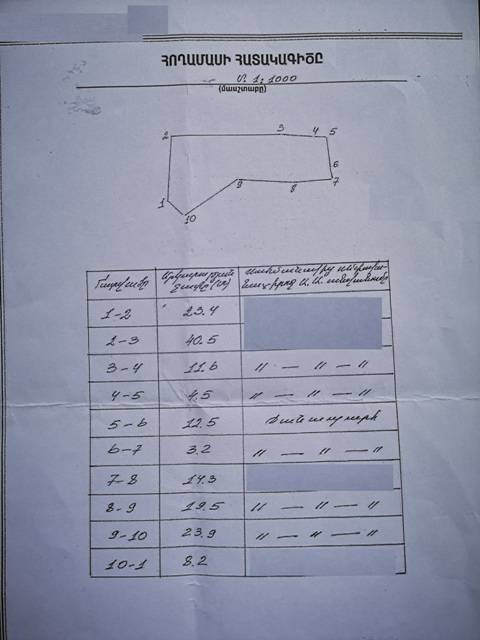 ՀՈՂԱՄԱՍԻ ՀԱՏԱԿԱԳԻԾԸ
Մ. 1:1000
(մասշտաբը)
2 3 4 5
6
9 8 7
1
10
1-2 23.4
2-3 40.5
3-4 11.6 〃 — 〃 — 〃
4-5 4.5 〃 — 〃 — 〃
5-6 12.5 Ճանապարհ
6-7 3.2 〃 — 〃 — 〃
7-8 14.3
8-9 19.5 〃 — 〃 — 〃
9-10 23.9 〃 — 〃 — 〃
10-1 8.2